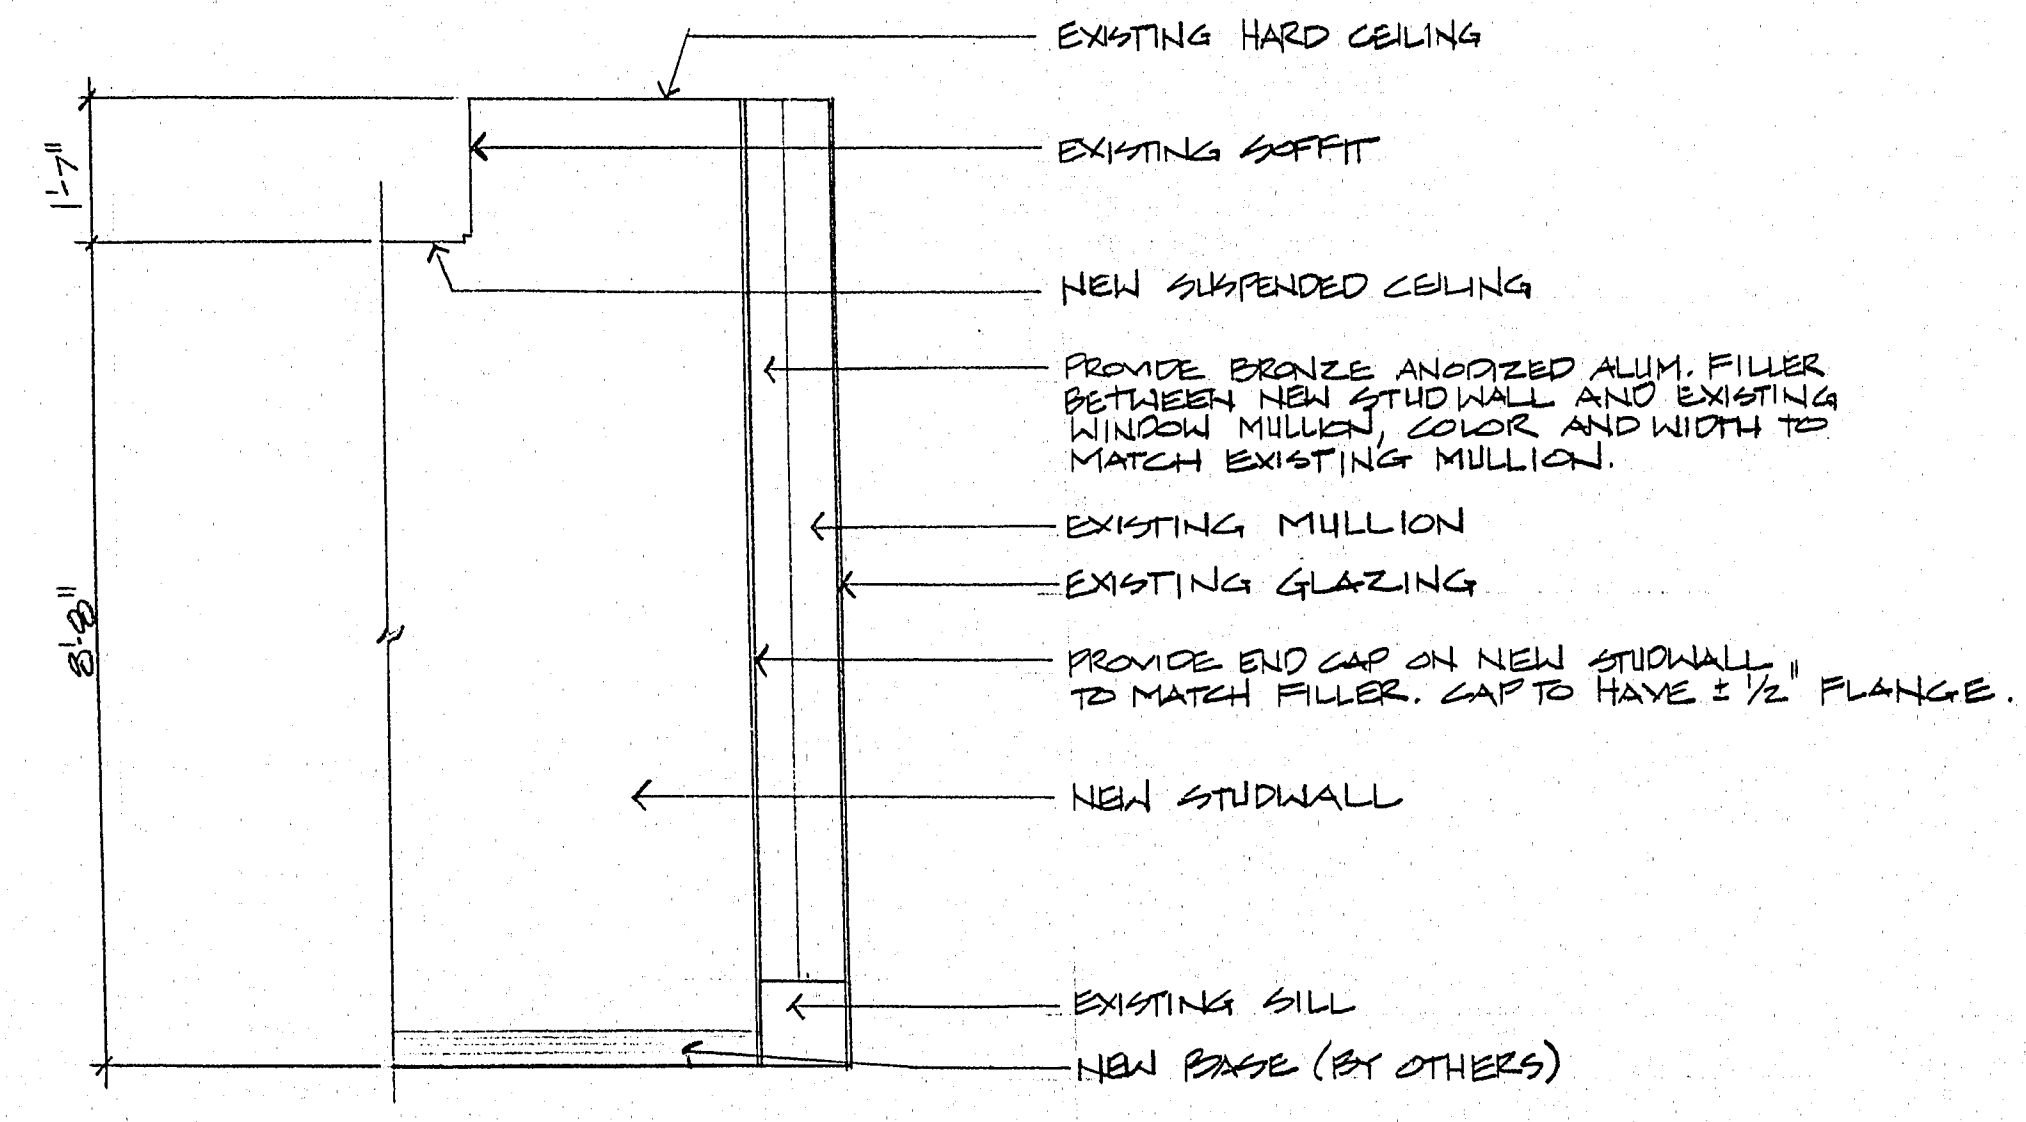 EXISTING HARD CEILING
1'-7"
EXISTING SOFFIT
NEW SUSPENDED CEILING
PROVIDE BRONZE ANODIZED ALUM. FILLER
BETWEEN NEW STUDWALL AND EXISTING
WINDOW MULLION, COLOR AND WIDTH TO
MATCH EXISTING MULLION.
EXISTING MULLION
EXISTING GLAZING
8'-8"
PROVIDE END CAP ON NEW STUDWALL
TO MATCH FILLER. CAP TO HAVE ± 1/2" FLANGE.
NEW STUDWALL
EXISTING SILL
NEW BASE (BY OTHERS)